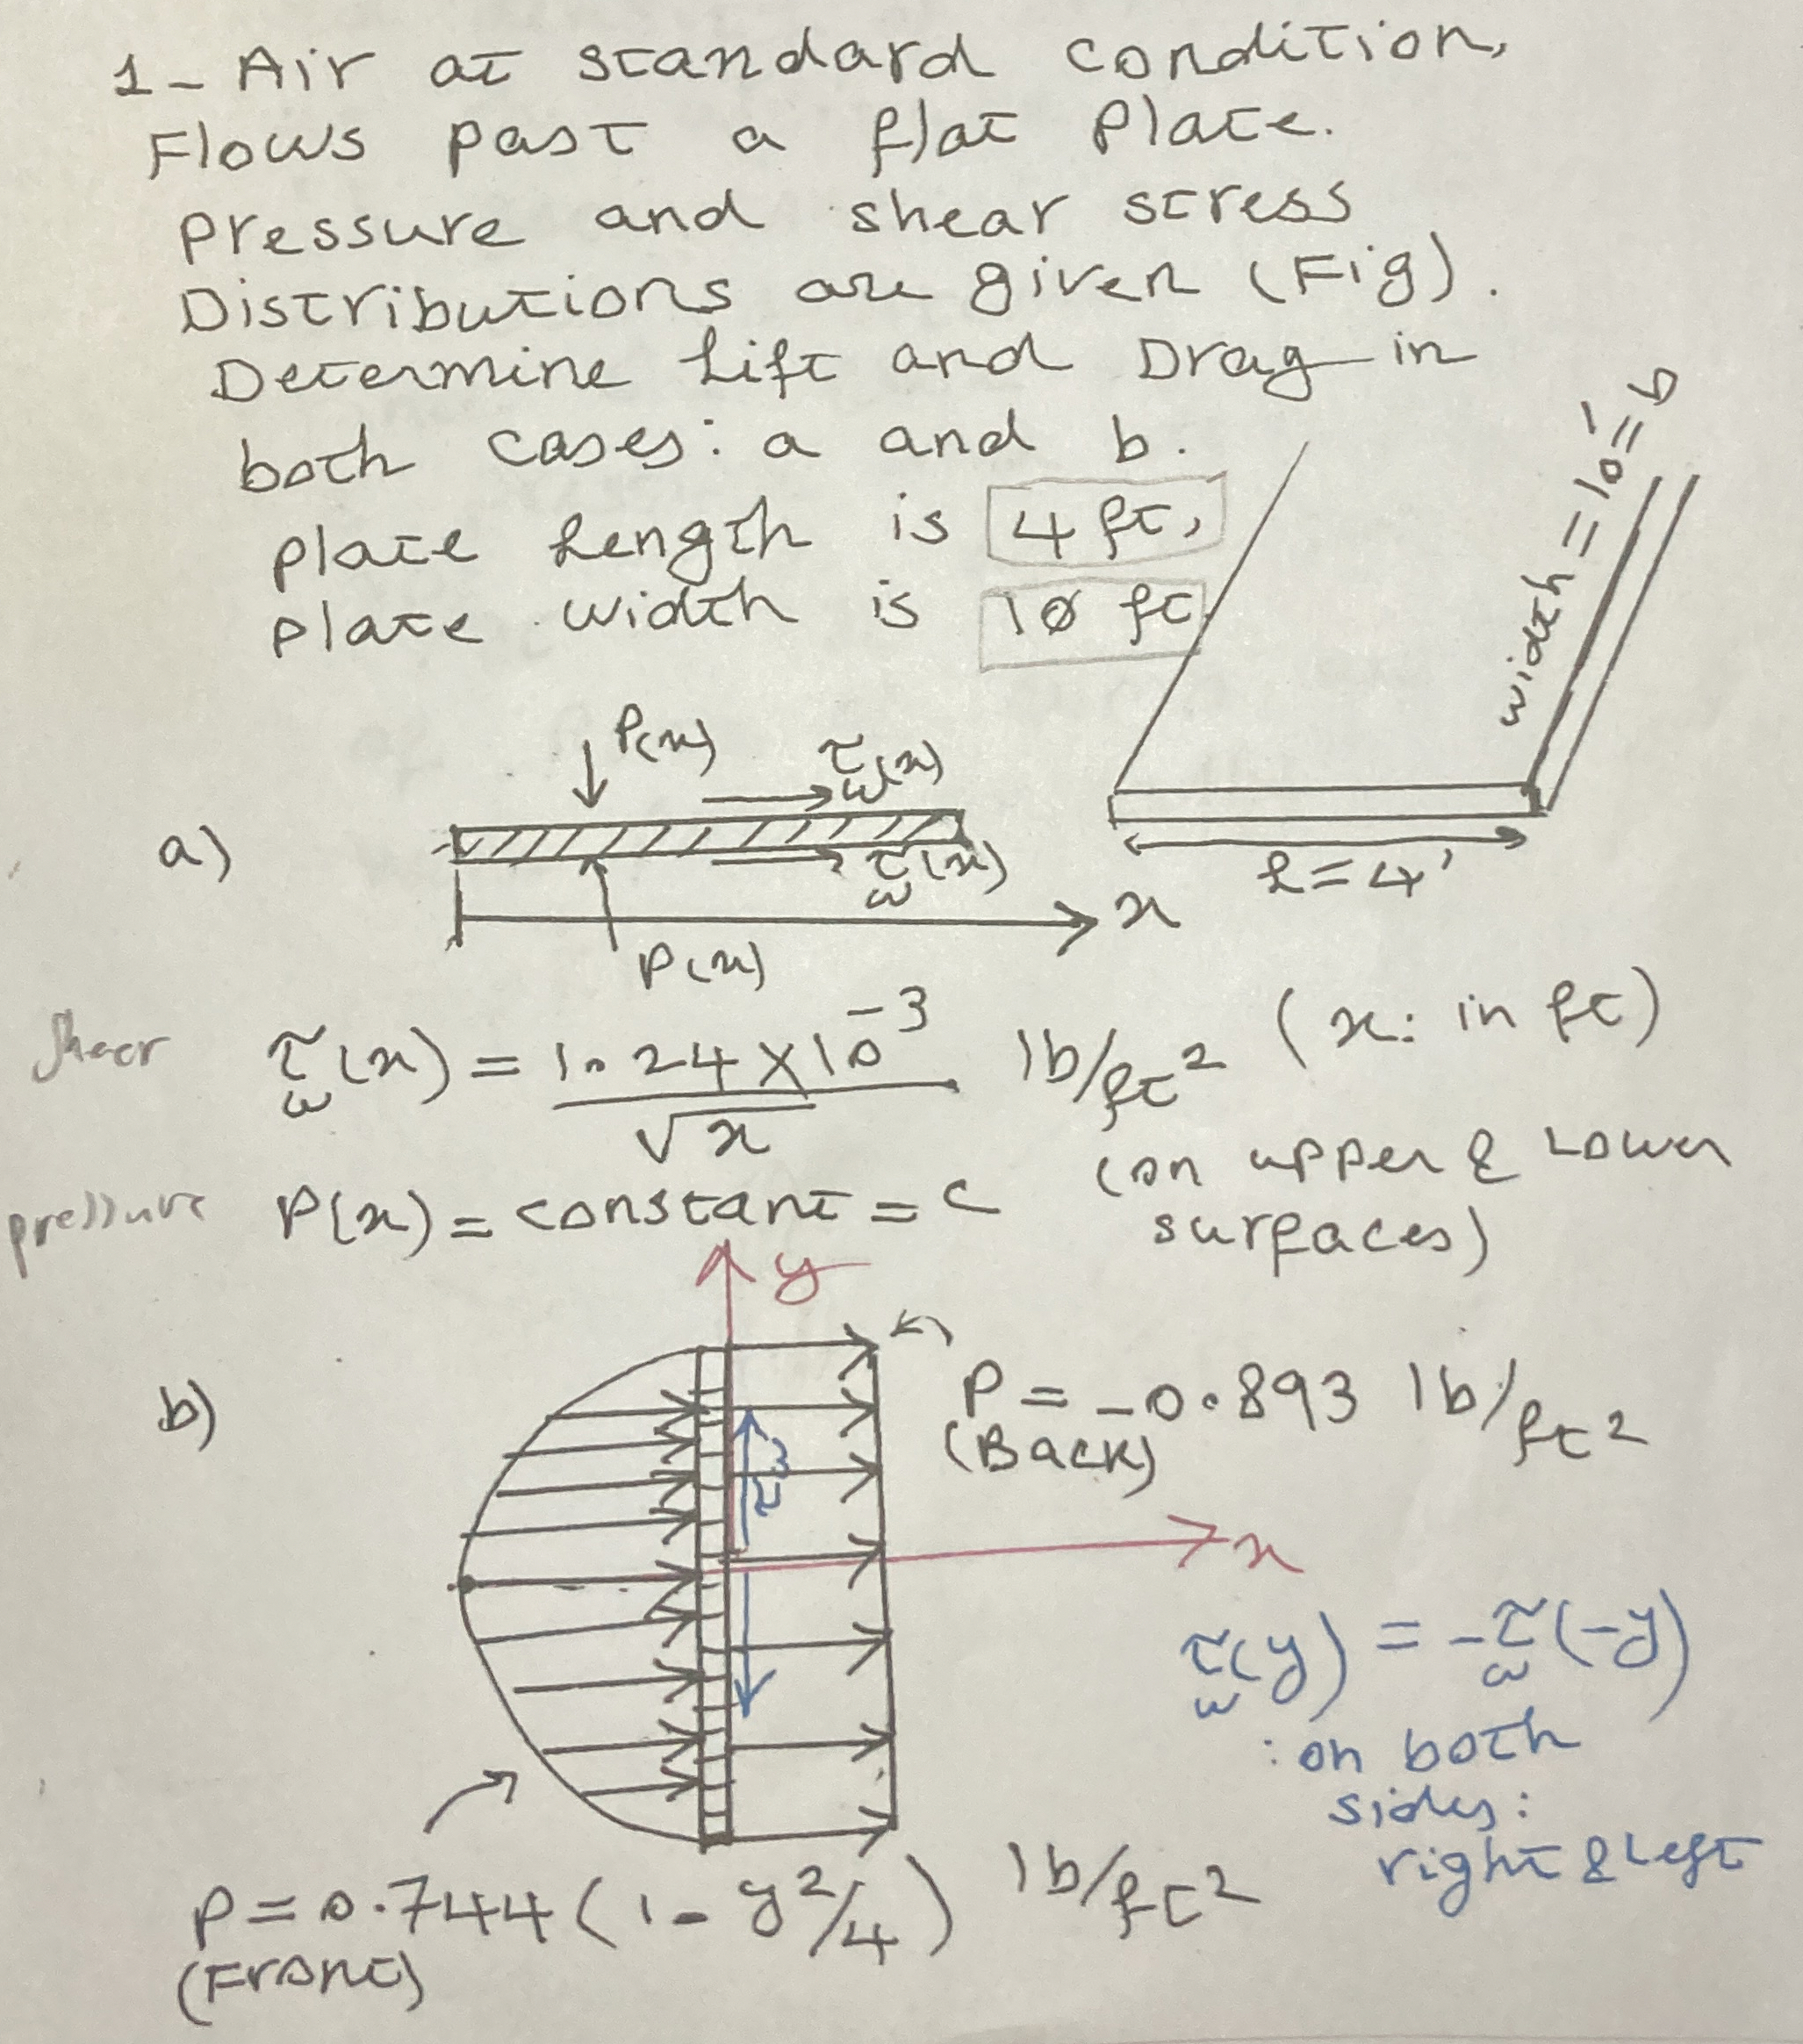 1- Air at standard condition,
Flows past a flat Plate.
Pressure and shear stress
Distributions are given (Fig).
Determine Lift and Drag in
both cases: a and b.
Plate Length is 4 ft,
Plate width is 10 ft
width = 10' = b
l = 4'
a)
P(x)
τw(x)
τw(x)
P(x)
x
Shear τw(x) = 1.24 × 10^-3 / √x lb/ft² (x: in ft)
pressure P(x) = constant = c (on upper & Lower
surfaces)
y
b)
P = -0.893 lb/ft²
(Back)
τw
x
τw(y) = -τw(-y)
: on both
sides:
right & Left
P = 0.744 (1 - y²/4) lb/ft²
(Front)